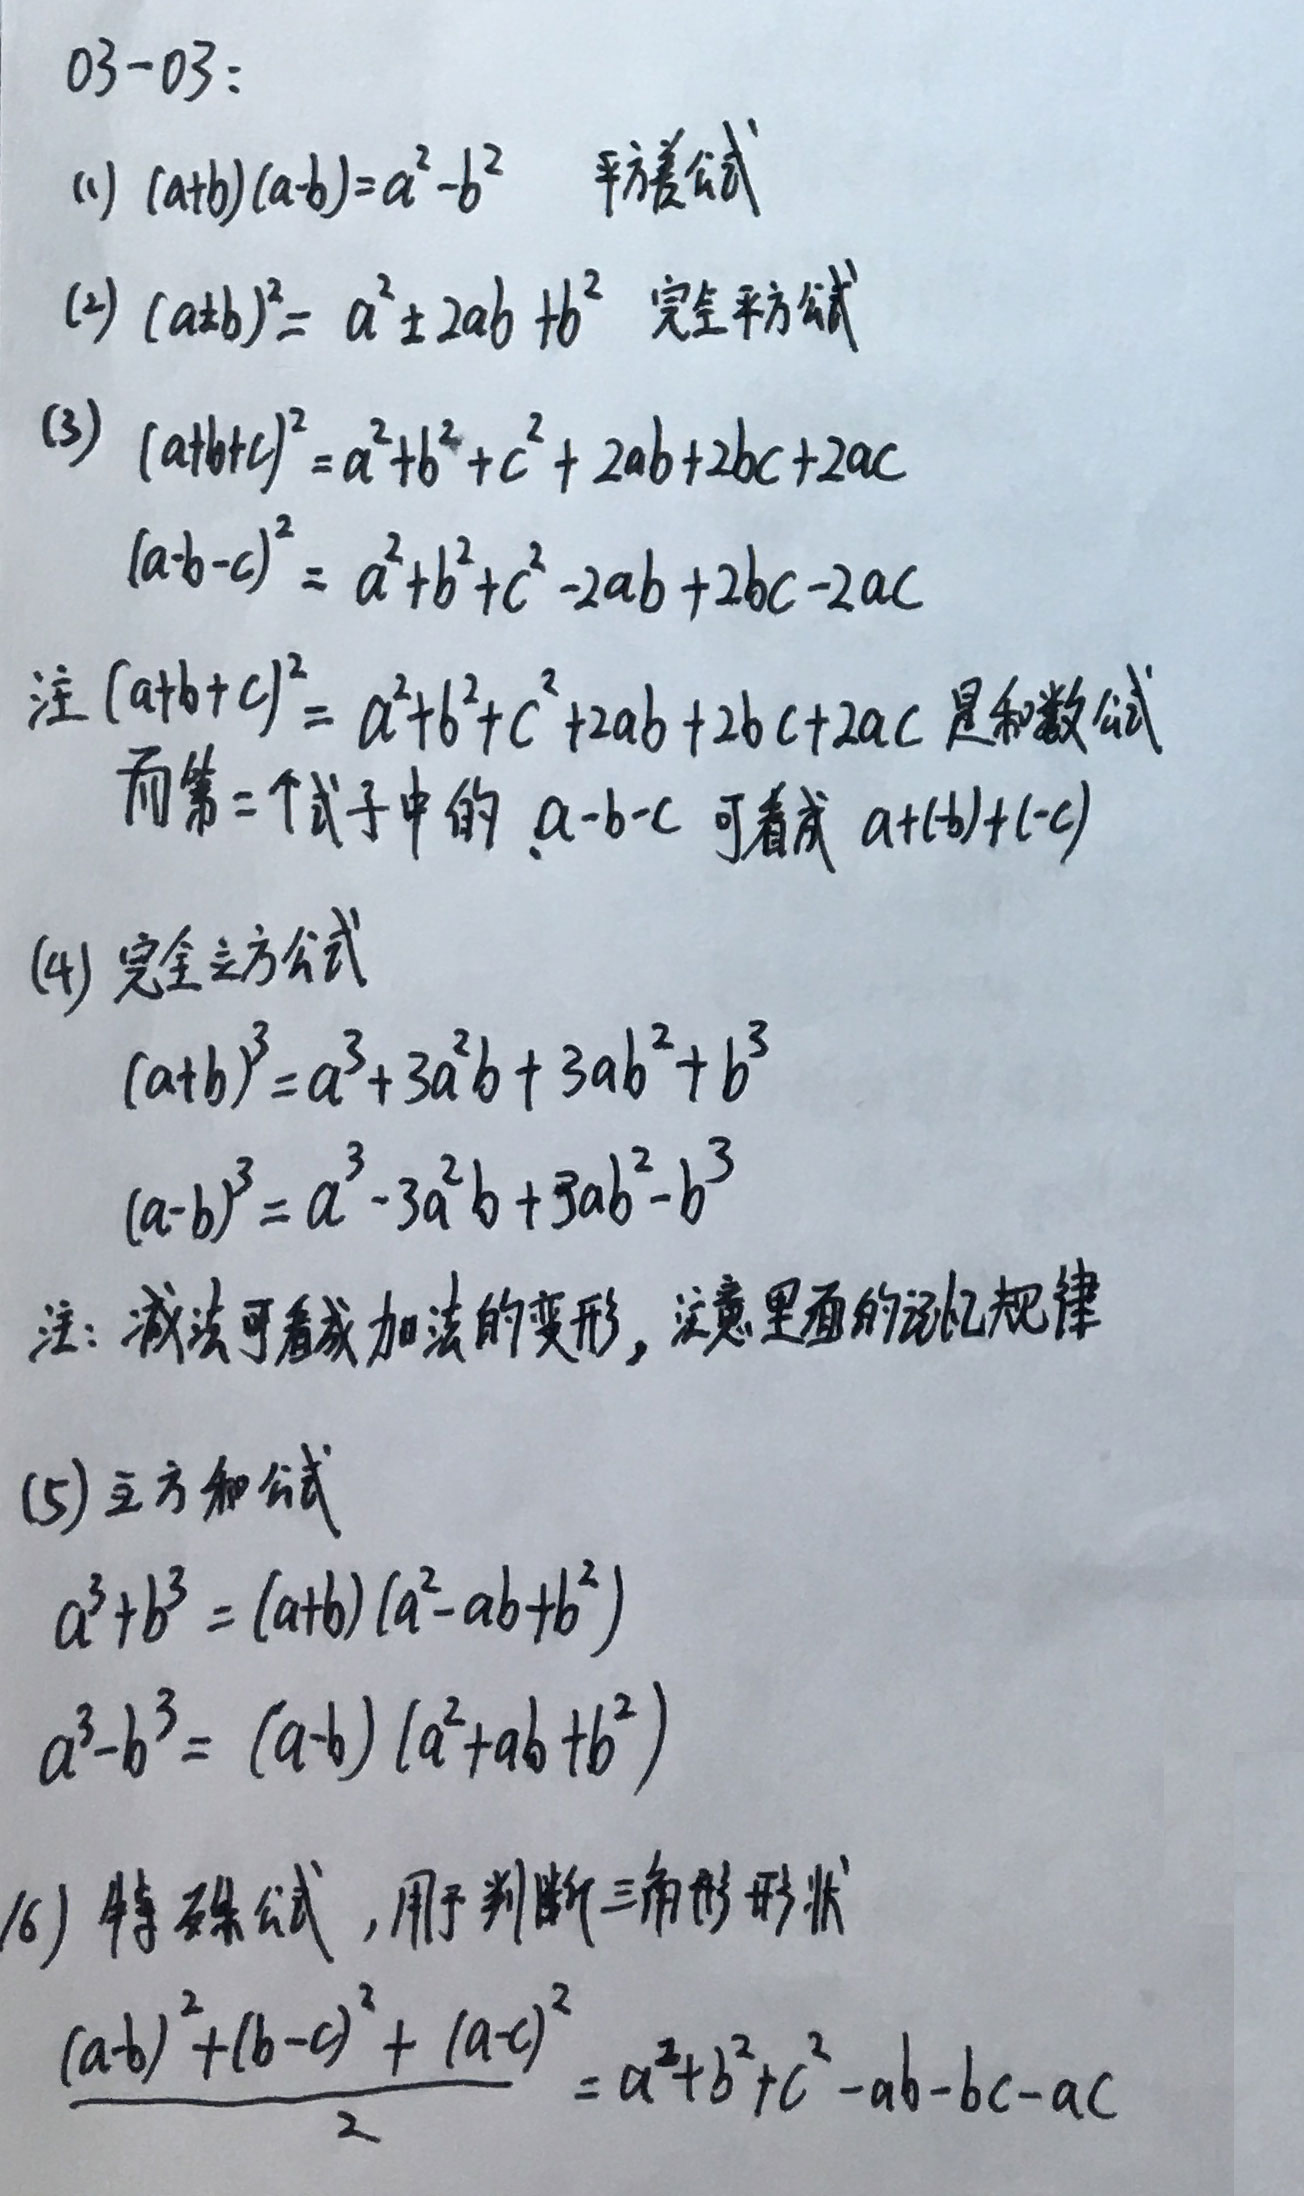 03-03:
(1) (a+b)(a-b)=a²-b² 平方差公式
(2) (a±b)²= a²±2ab+b² 完全平方公式
(3) (a+b+c)²=a²+b²+c²+2ab+2bc+2ac
(a-b-c)²= a²+b²+c²-2ab+2bc-2ac
注 (a+b+c)²= a²+b²+c²+2ab+2bc+2ac 是和数公式
而第二个式子中的 a-b-c 可看成 a+(-b)+(-c)
(4) 完全立方公式
(a+b)³=a³+3a²b+3ab²+b³
(a-b)³=a³-3a²b+3ab²-b³
注: 减法可看成加法的变形, 注意里面的记忆规律
(5) 立方和公式
a³+b³=(a+b)(a²-ab+b²)
a³-b³= (a-b)(a²+ab+b²)
(6) 特殊公式, 用于判断三角形形状
(a-b)²+(b-c)²+(a-c)²
/2 =a²+b²+c²-ab-bc-ac